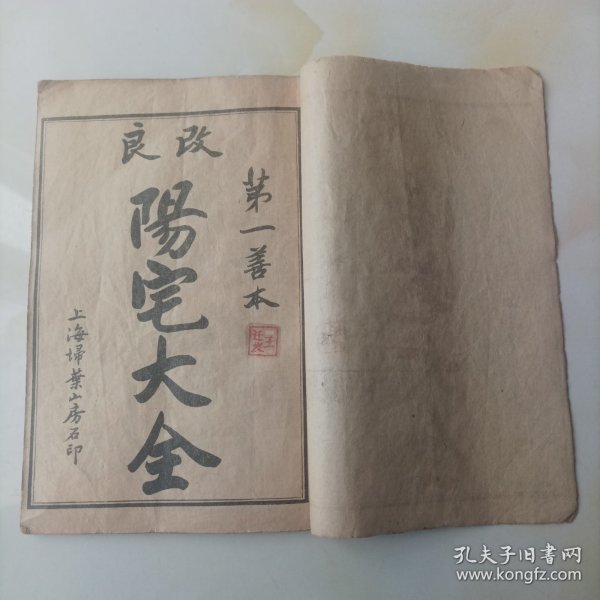 改良
第一善本
陽宅大全
上海埽葉山房石印
孔夫子旧书网
www.kongfz.com